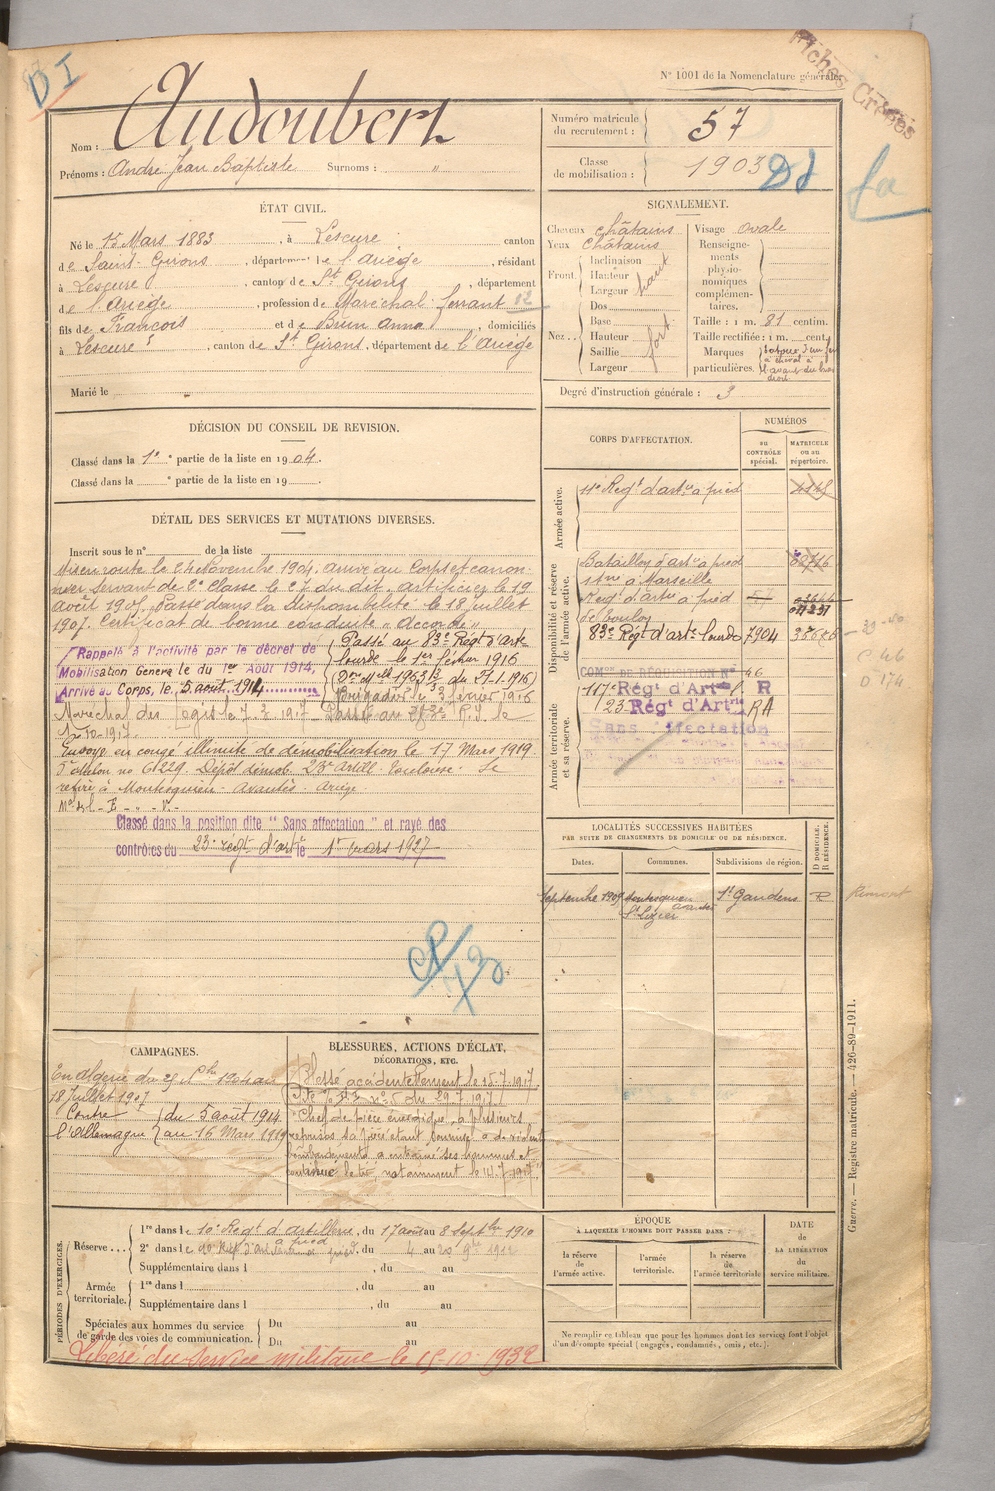 D I
N° 1001 de la Nomenclature générale.
Fiches Créées
Nom : Audoubert
Prénoms : André Jean Baptiste Surnoms : "
Numéro matricule du recrutement : 57
Classe de mobilisation : 1903
ÉTAT CIVIL.
Né le 15 Mars 1883, à Lescure, canton
de Saint-Girons, département de l'Ariège, résidant
à Lescure, canton de St Girons, département
de l'Ariège, profession de Maréchal-ferrant 12
fils de François et de Brun Anna, domiciliés
à Lescure, canton de St Girons, département de l'Ariège
Marié le
SIGNALEMENT.
Cheveux châtains
Yeux châtains
Front. Inclinaison
Hauteur haut
Largeur
Nez... Dos
Base
Hauteur fort
Saillie
Largeur
Visage ovale
Renseignements physionomiques complémentaires.
Taille : 1 m. 81 centim.
Taille rectifiée : 1 m. cent.
Marques particulières.
Degré d'instruction générale : 3
DÉCISION DU CONSEIL DE REVISION.
Classé dans la 1e partie de la liste en 1904.
Classé dans la ° partie de la liste en 19
DÉTAIL DES SERVICES ET MUTATIONS DIVERSES.
Inscrit sous le n° de la liste
Mis en route le 24 Novembre 1904, arrivé au Corps et canon-
nier servant de 2e Classe le 27 du dit, artificier le 19
Août 1905, Passé dans la Disponibilité le 18 juillet
1907. Certificat de bonne conduite "Accordé"
Rappelé à l'activité par le décret de
Mobilisation Générale du 1er Août 1914,
Arrivé au Corps, le 5 août 1914
Passé au 83e Régt d'artie
lourde le 1er février 1916
(Don Mlle 1963 du 27-1-1916)
Brigadier le 3 février 1916
Maréchal des Logis le 7-2-1917
Envoyé en congé illimité de démobilisation le 17 Mars 1919.
5e échelon no 6229. Dépôt démob. 23e Artill. Toulouse. Se
retire à Montesquieu-Avantès Ariège.
Classé dans la position dite "Sans affectation" et rayé des
contrôles du 23e régt d'artie le 1er mars 1927
CORPS D'AFFECTATION.
NUMÉROS
au CONTRÔLE spécial.
MATRICULE ou au répertoire.
Armée active.
11e Régt d'artie à pied
Disponibilité et réserve de l'armée active.
Bataillon d'artie à pied
1 bie à Marseille
Régt d'artie à pied
de Toulon
83e Régt d'artie Lourde 7904
Armée territoriale et sa réserve.
COMon DE RÉQUISITION N° 46
117e Régt d'Artie R
23 Régt d'Artie RA
Sans affectation
LOCALITÉS SUCCESSIVES HABITÉES
PAR SUITE DE CHANGEMENTS DE DOMICILE OU DE RÉSIDENCE.
Dates. Communes. Subdivisions de région. D DOMICILE. R RÉSIDENCE.
Septembre 1909 Montesquieu Avantès St Lizier St Gaudens R Rimont
CAMPAGNES.
En Algérie du 29 9bre 1904 au
18 Juillet 1907
Contre l'Allemagne du 5 août 1914
au 16 Mars 1919
BLESSURES, ACTIONS D'ÉCLAT,
DÉCORATIONS, ETC.
Blessé accidentellement le 15-7-1917
"Chef de pièce énergique, à plusieurs
reprises sa pièce étant soumise à de violents
bombardements a entraîné ses hommes et
continué le tir notamment le 14-7-1917."
PÉRIODES D'EXERCICES.
Réserve... 1re dans le 10e Régt d'artillerie à pied, du 17 août au 8 Septbre 1910
2e dans le 10e Régt d'artillerie à pied, du 4 au 20 9bre 1912
Supplémentaire dans l , du au
Armée territoriale. 1re dans l , du au
Supplémentaire dans l , du au
Spéciales aux hommes du service de garde des voies de communication. Du au
Du au
ÉPOQUE
À LAQUELLE L'HOMME DOIT PASSER DANS :
la réserve de l'armée active.
l'armée territoriale.
la réserve de l'armée territoriale
DATE de LA LIBÉRATION du service militaire.
Ne remplir ce tableau que pour les hommes dont les services font l'objet
d'un décompte spécial (engagés, condamnés, omis, etc.).
Libéré du service militaire le 15-10-1932
Guerre. — Registre matricule. — 426-89-1911.